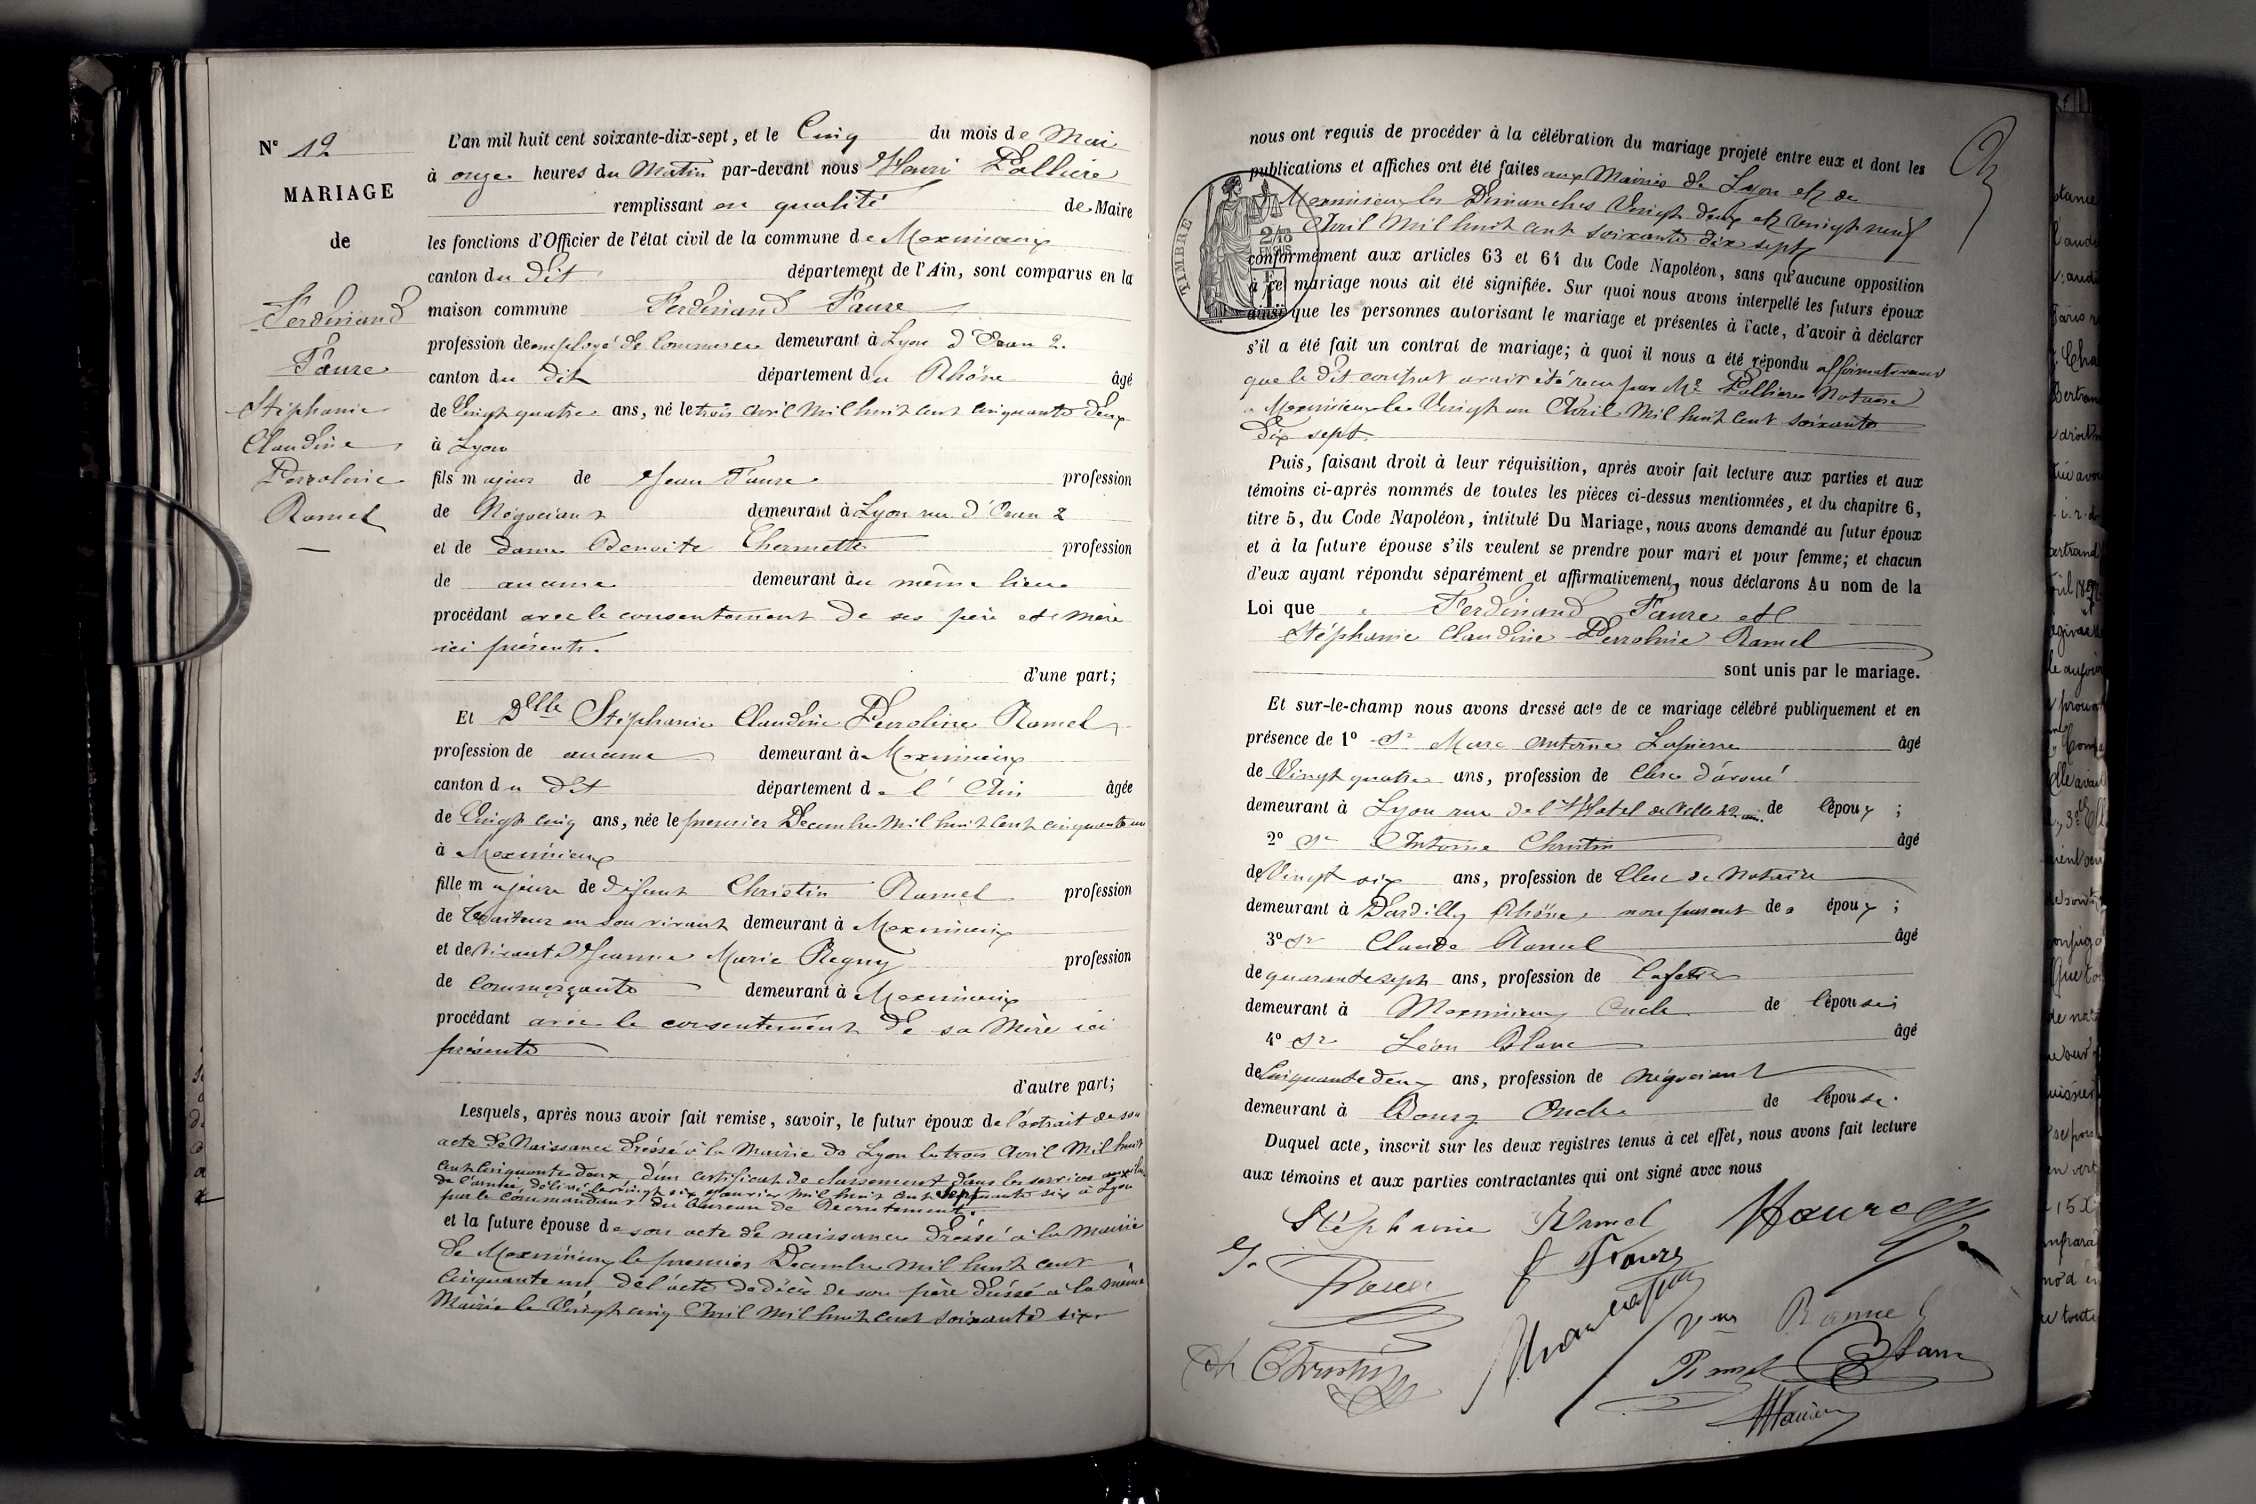 N° 12
MARIAGE
de
Ferdinand
Faure
Stéphanie
Claudine
Perroline
Ramel
L'an mil huit cent soixante-dix-sept, et le Cinq du mois de Mai
à onze heures du Matin par-devant nous Henri Pallière
remplissant en qualité de Maire
les fonctions d'Officier de l'état civil de la commune de Meximieux
canton du dit département de l'Ain, sont comparus en la
maison commune Ferdinand Faure
profession de employé de Commerce demeurant à Lyon 2.
canton du dit département du Rhône âgé
de Vingt quatre ans, né le trois avril mil huit cent cinquante deux
à Lyon
fils majeur de Jean Faure profession
de Négociant demeurant à Lyon rue 2
et de dame Benoite Chermette profession
de aucune demeurant au même lieu
procédant avec le consentement de ses père et mère
ici présents.
d'une part;
Et Delle Stéphanie Claudine Perroline Ramel
profession de aucune demeurant à Meximieux
canton du dit département de l'Ain âgée
de Vingt cinq ans, née le premier Décembre mil huit cent cinquante un
à Meximieux
fille majeure de défunt Christin Ramel profession
de Traiteur en son vivant demeurant à Meximieux
et de vivante Jeanne Marie Regny profession
de Commerçante demeurant à Meximieux
procédant avec le consentement de sa Mère ici
présente
d'autre part;
Lesquels, après nous avoir fait remise, savoir, le futur époux de l'extrait de son
acte de Naissance dressé à la Mairie de Lyon le trois Avril Mil huit
cent Cinquante deux, d'un certificat de classement dans les services auxiliaires
de l'armée, délivré le vingt six mil huit cent septante six à Lyon
par le Commandant du bureau de Recrutement.
et la future épouse de son acte de naissance dressé à la Mairie
de Meximieux le premier Décembre mil huit cent
Cinquante un, de l'acte de décès de son père dressé à la même
Mairie le Vingt cinq Avril Mil huit cent soixante six
nous ont requis de procéder à la célébration du mariage projeté entre eux et dont les
publications et affiches ont été faites aux Mairies de Lyon et de
Meximieux les Dimanches Vingt deux et vingt neuf
Avril Mil huit cent soixante dix sept
conformément aux articles 63 et 64 du Code Napoléon, sans qu'aucune opposition
à ce mariage nous ait été signifiée. Sur quoi nous avons interpellé les futurs époux
ainsi que les personnes autorisant le mariage et présentes à l'acte, d'avoir à déclarer
s'il a été fait un contrat de mariage; à quoi il nous a été répondu affirmativement
que le dit contrat avait été reçu par Me Pallière Notaire
à Meximieux le Vingt un Avril Mil huit cent soixante
dix sept.
Puis, faisant droit à leur réquisition, après avoir fait lecture aux parties et aux
témoins ci-après nommés de toutes les pièces ci-dessus mentionnées, et du chapitre 6,
titre 5, du Code Napoléon, intitulé Du Mariage, nous avons demandé au futur époux
et à la future épouse s'ils veulent se prendre pour mari et pour femme; et chacun
d'eux ayant répondu séparément et affirmativement, nous déclarons Au nom de la
Loi que Ferdinand Faure et
Stéphanie Claudine Perroline Ramel
sont unis par le mariage.
Et sur-le-champ nous avons dressé acte de ce mariage célébré publiquement et en
présence de 1° Sr Marc Antoine Lapierre âgé
de Vingt quatre ans, profession de Clerc d'avoué
demeurant à Lyon rue de l'Hotel de Ville de l'époux ;
2° Sr Antoine Christin âgé
de Vingt six ans, profession de Clerc de Notaire
demeurant à Dardilly Rhône, non parent des époux ;
3° Sr Claude Ramel âgé
de quarante sept ans, profession de Cafetier
demeurant à Meximieux Oncle de l'épouse;
4° Sr Léon Blanc âgé
de Cinquante deux ans, profession de Négociant
demeurant à Bourg Oncle de l'épouse.
Duquel acte, inscrit sur les deux registres tenus à cet effet, nous avons fait lecture
aux témoins et aux parties contractantes qui ont signé avec nous
Stéphanie Ramel
f Faure
Vve Ramel
Christin
Ramel Blanc
TIMBRE
2/10
EN SUS